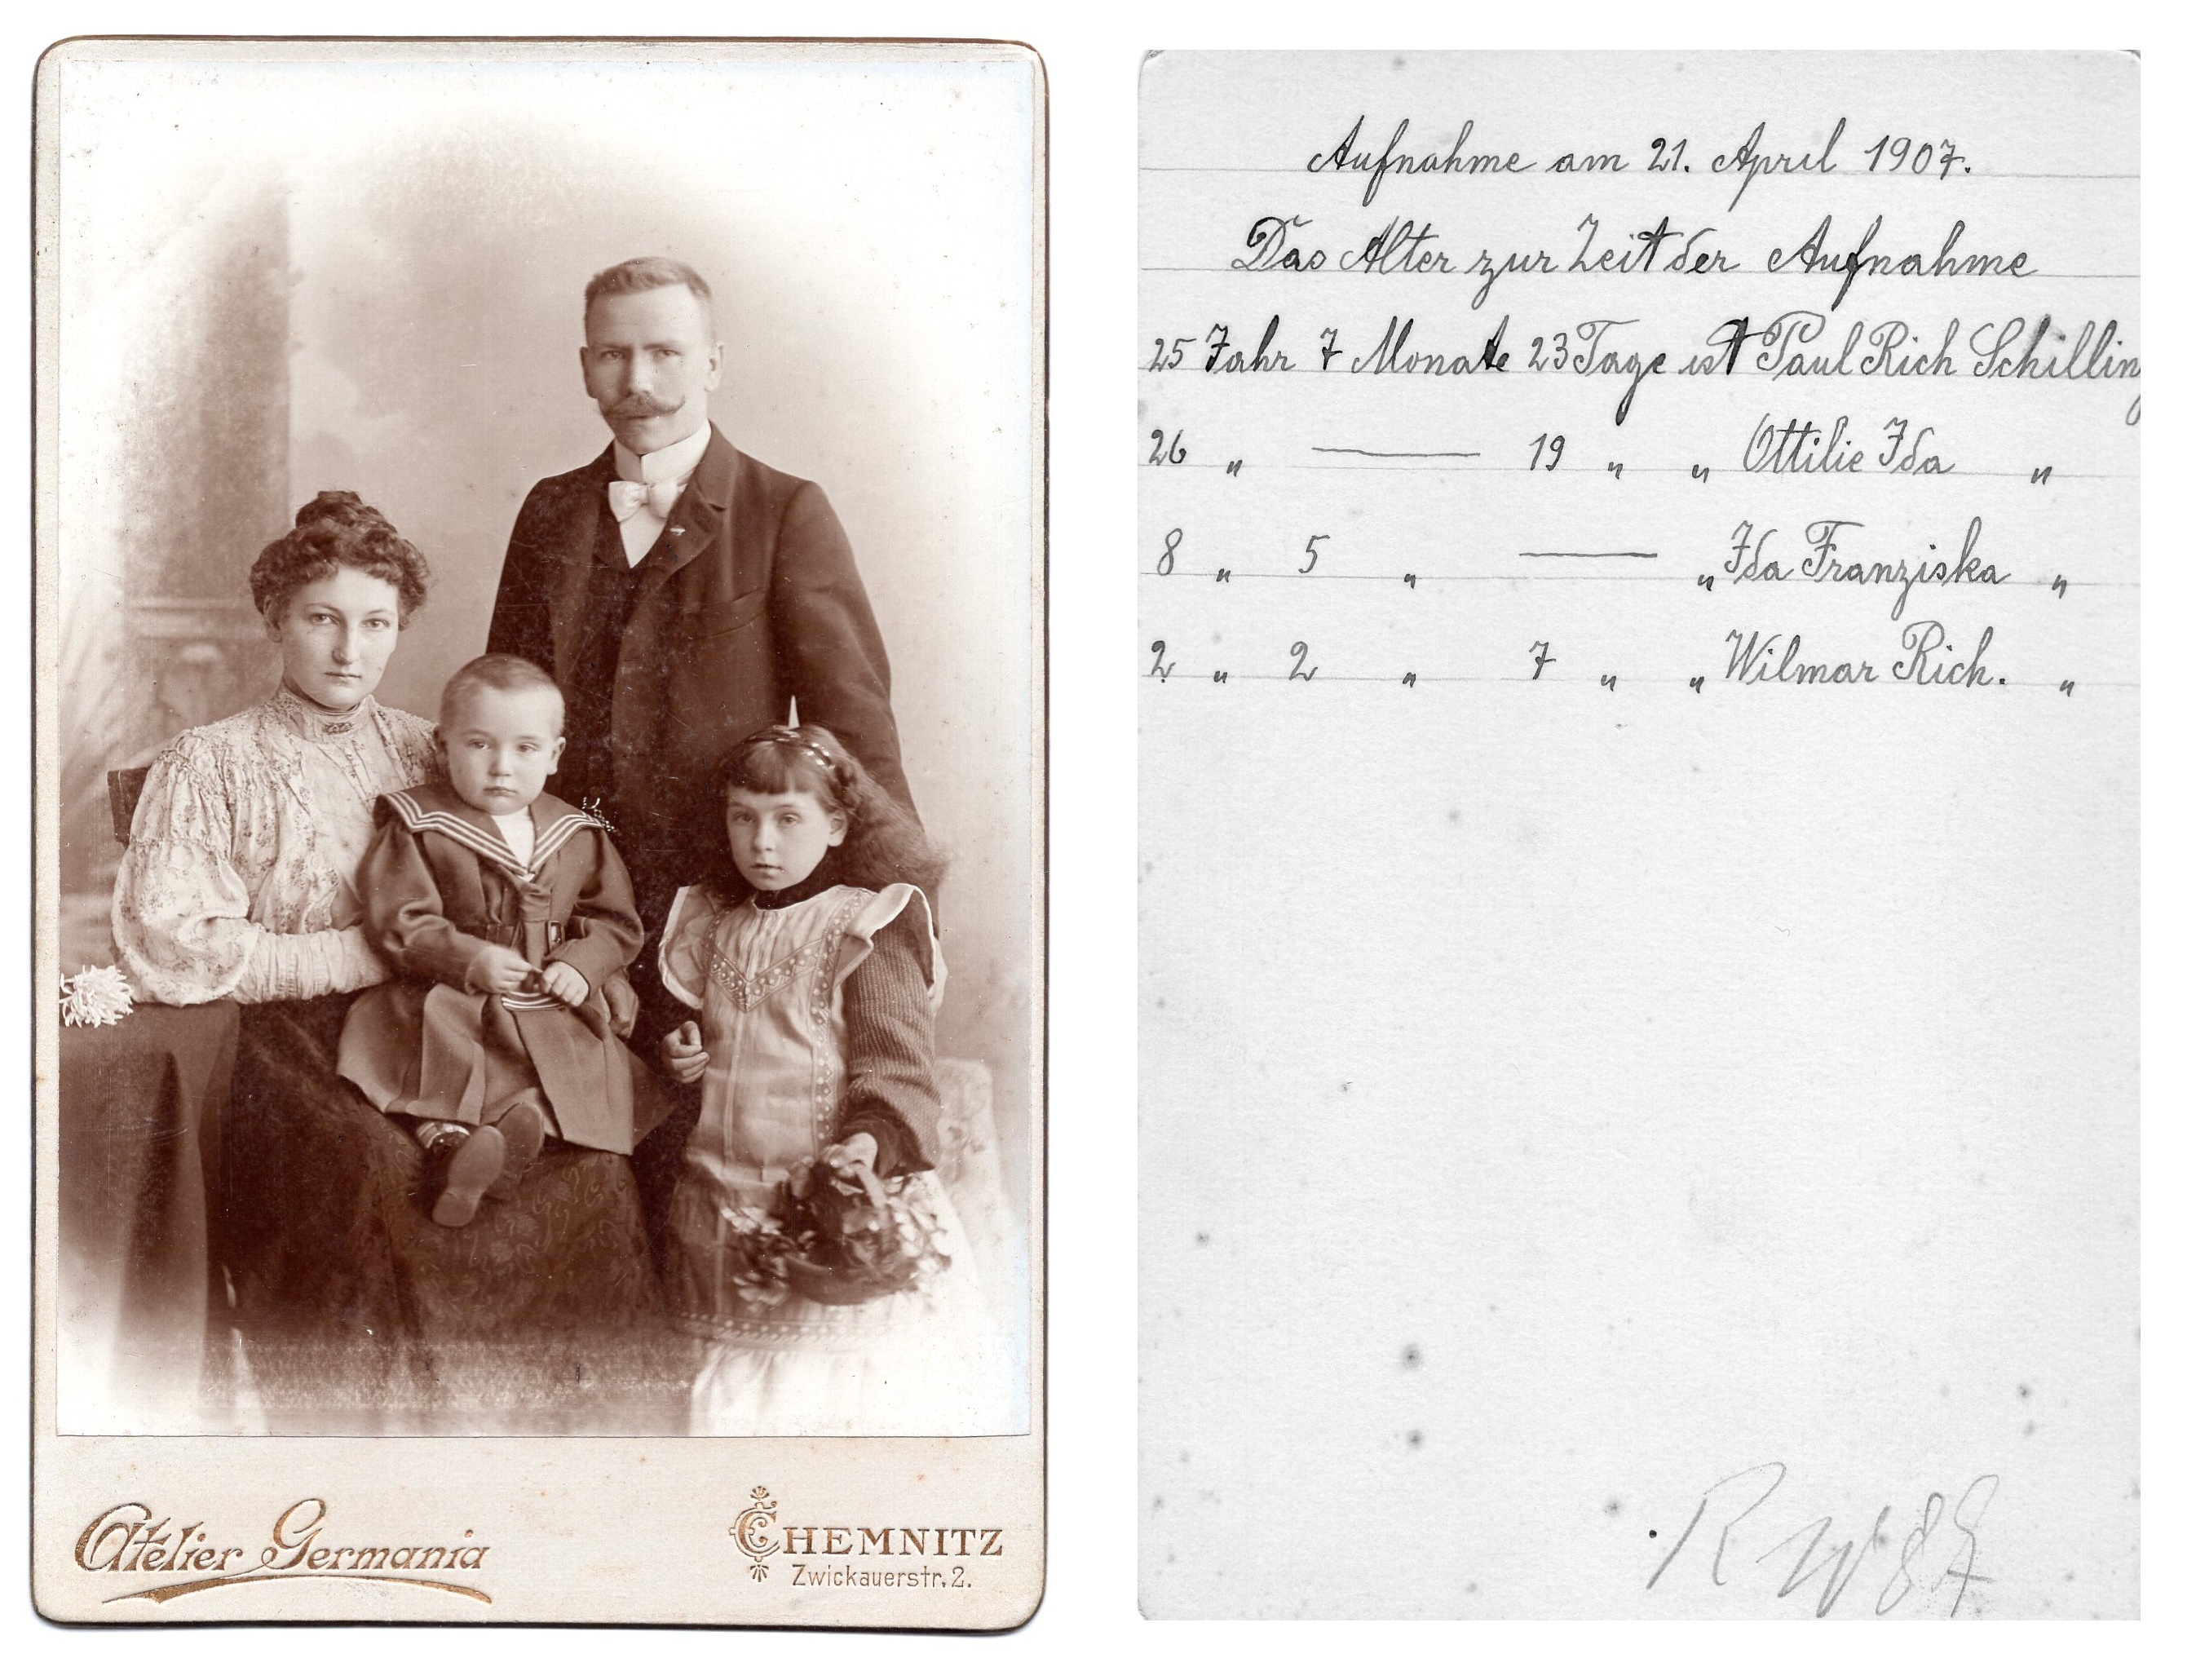 Atelier Germania
CHEMNITZ
Zwickauerstr. 2.
Aufnahme am 21. April 1907.
Das Alter zur Zeit der Aufnahme
25 Jahr 7 Monate 23 Tage ist Paul Rich Schilling
26 „ — 19 „ „ Ottilie Ida „
8 „ 5 „ — „ Ida Franziska „
2 „ 2 „ 7 „ „ Wilmar Rich. „